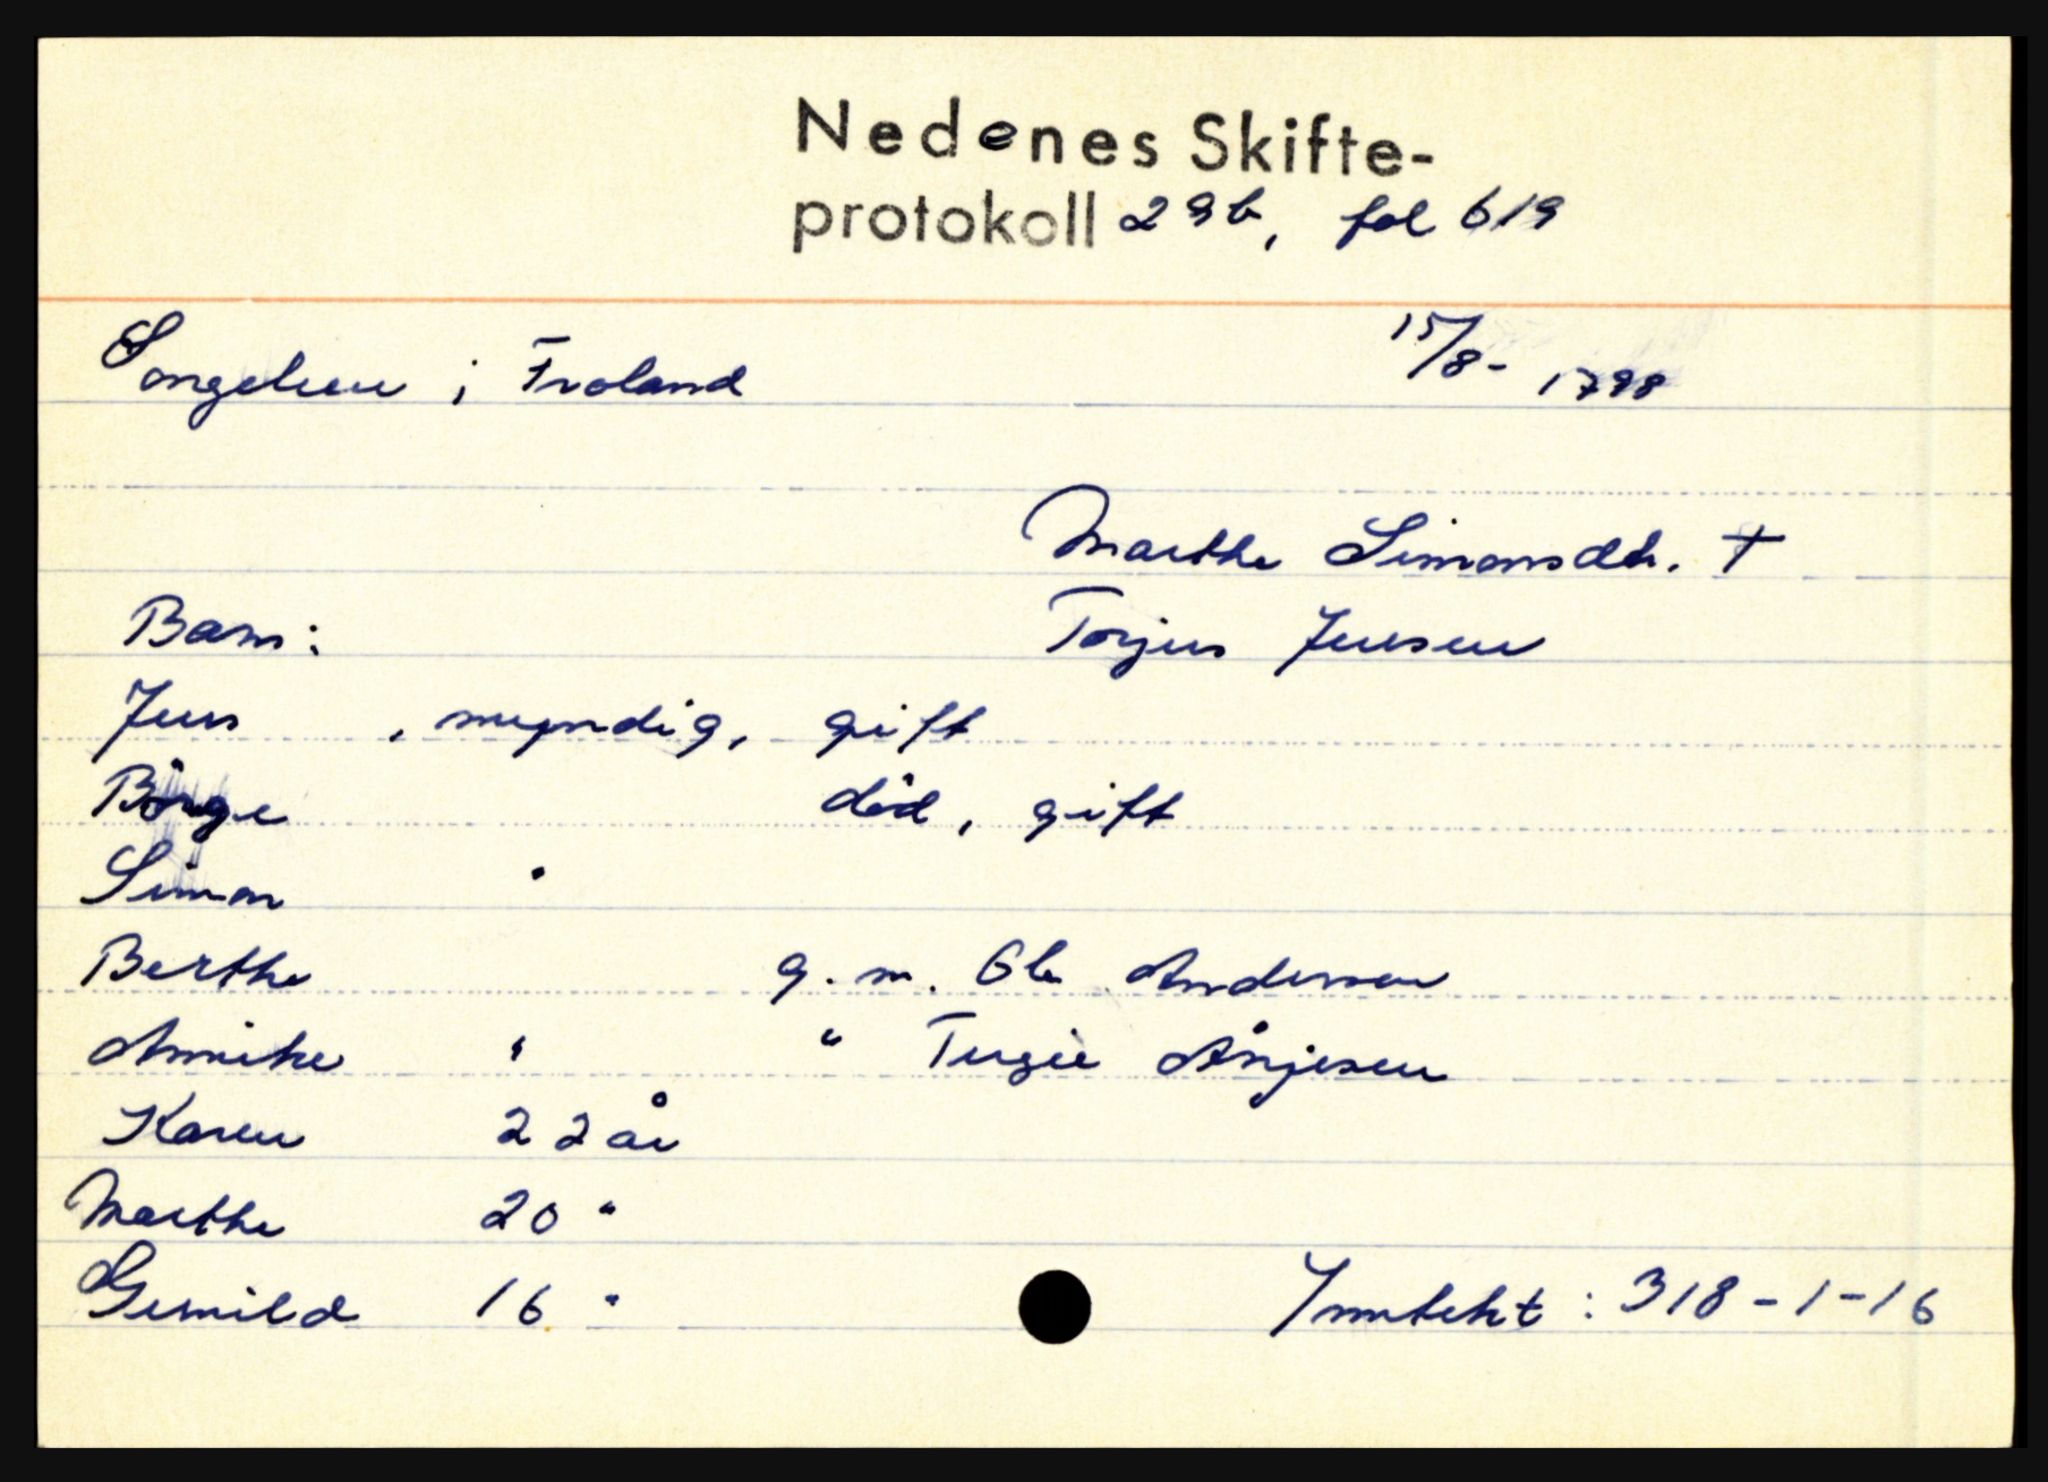 Nedenes Skifte-
protokoll 29b, fol 619
Songeluen i Froland 15/8- 1798
Marthe Simonsdtr. †
Barn: Torjus Jensen
Jens , myndig, gift
Börge död, gift
Simon "
Berthe g. m. Ole Andersen
Annike " " Tergie Ånjesen
Karen 22 år
Marthe 20 "
Gunild 16 "
Inntekt : 318-1-16